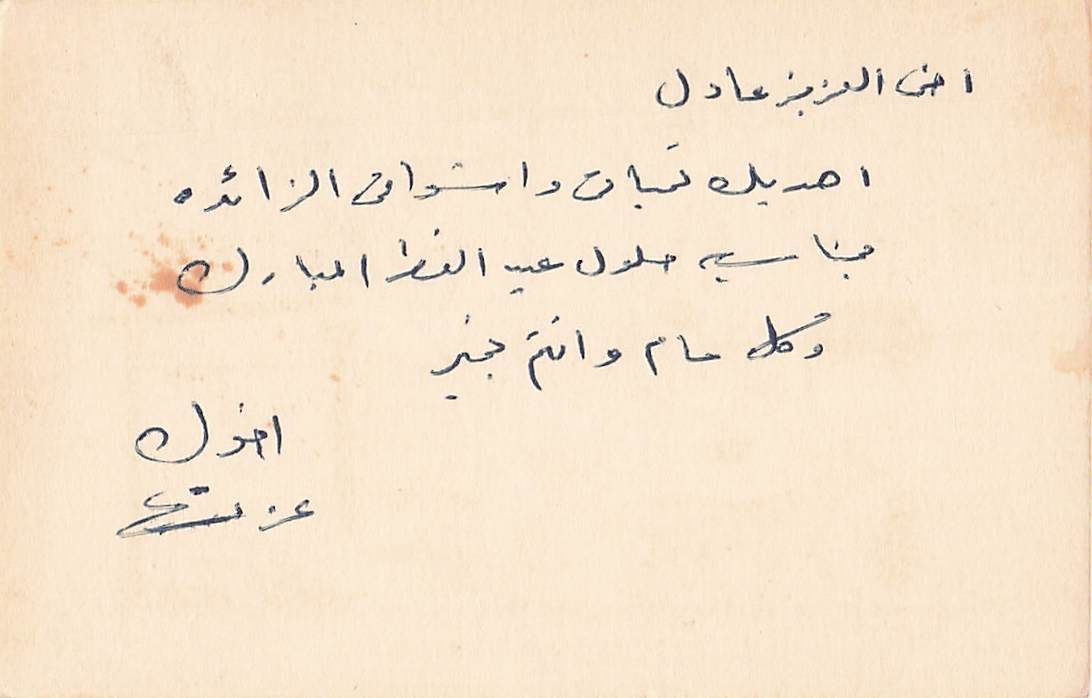 اخى العزيز عادل
اهديك تحياتى واشواقى الزائده
بمناسبه حلول عيد الفطر المبارك
وكل عام وانتم بخير
اخوك
عزت